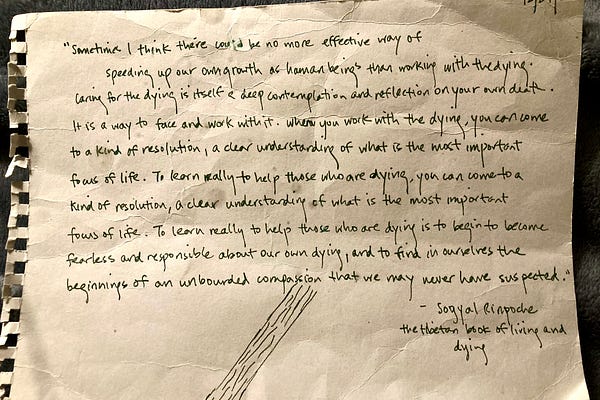 "Sometimes I think there could be no more effective way of
speeding up our own growth as human beings than working with the dying.
Caring for the dying is itself a deep contemplation and reflection on your own death.
It is a way to face and work with it. When you work with the dying, you can come
to a kind of resolution, a clear understanding of what is the most important
focus of life. To learn really to help those who are dying, you can come to a
kind of resolution, a clear understanding of what is the most important
focus of life. To learn really to help those who are dying is to begin to become
fearless and responsible about our own dying, and to find in ourselves the
beginnings of an unbounded compassion that we may never have suspected."
- Sogyal Rinpoche
the Tibetan book of living and
dying